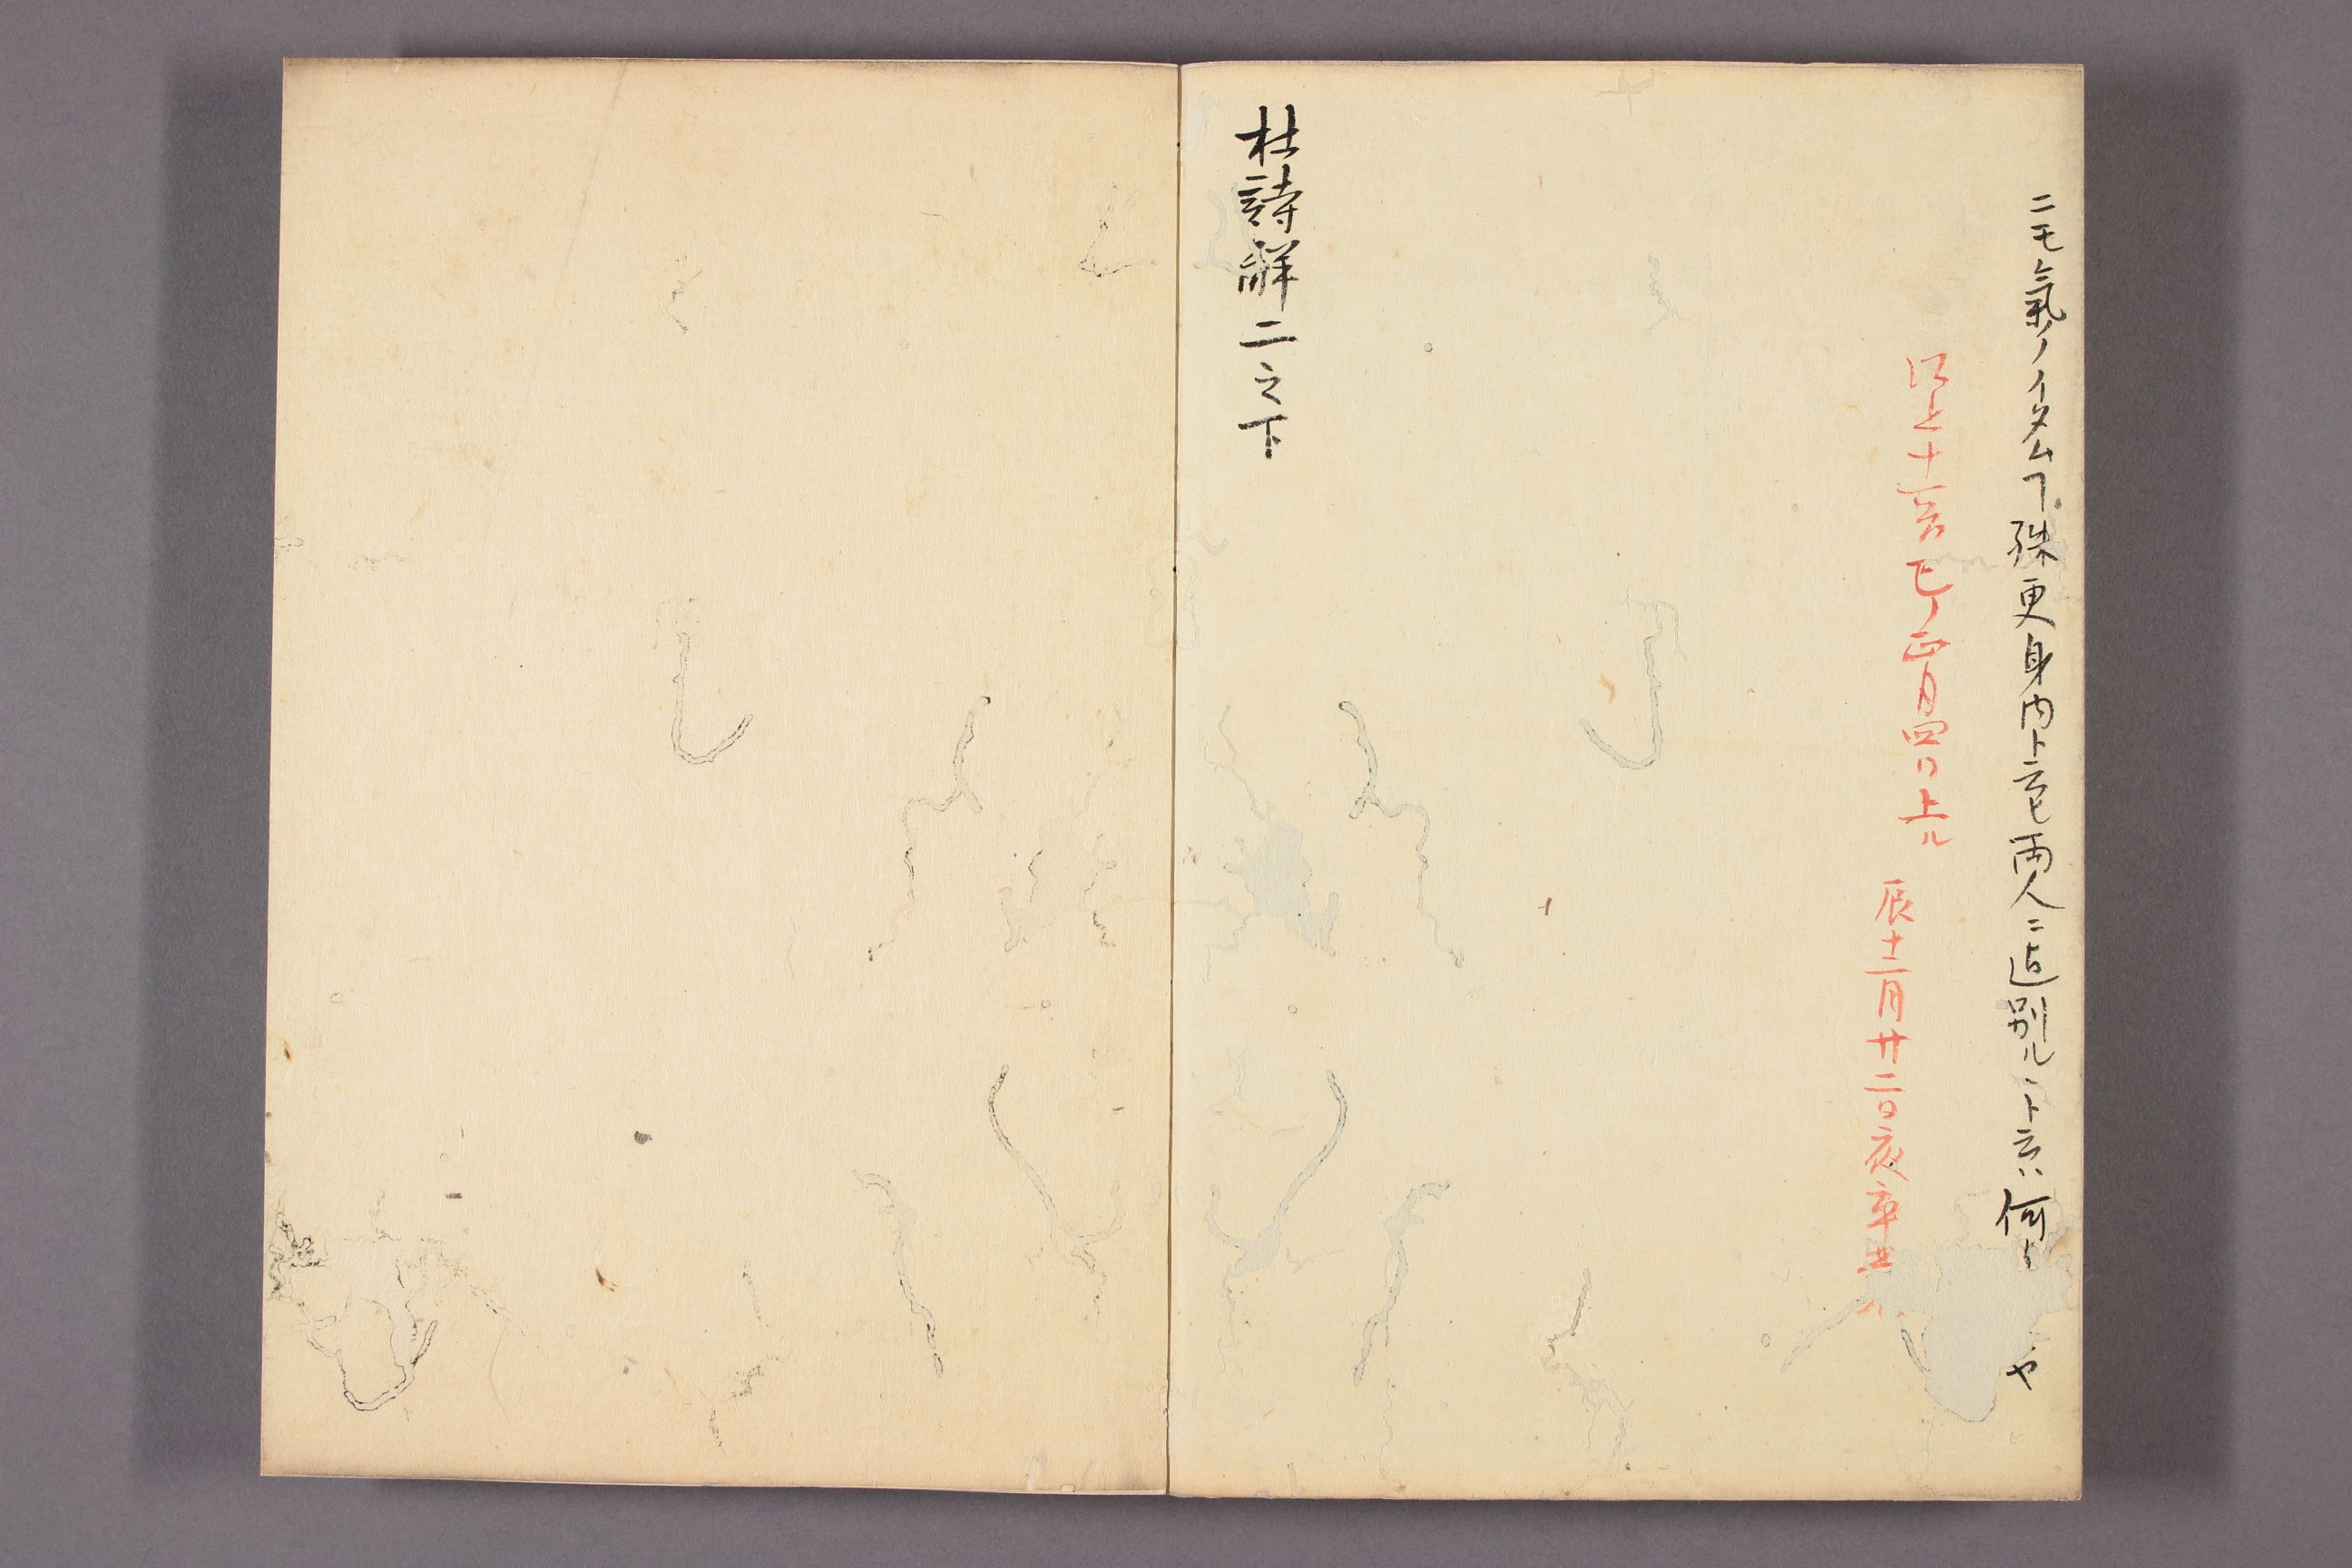 ニモ氣ノイタムヿ殊更身内ト云モ両人ニ迄別ルヽト云ハ何
ヤ
十一 巳ノ正月四日上ル
辰十二月廿二日亥
杜詩解二之下